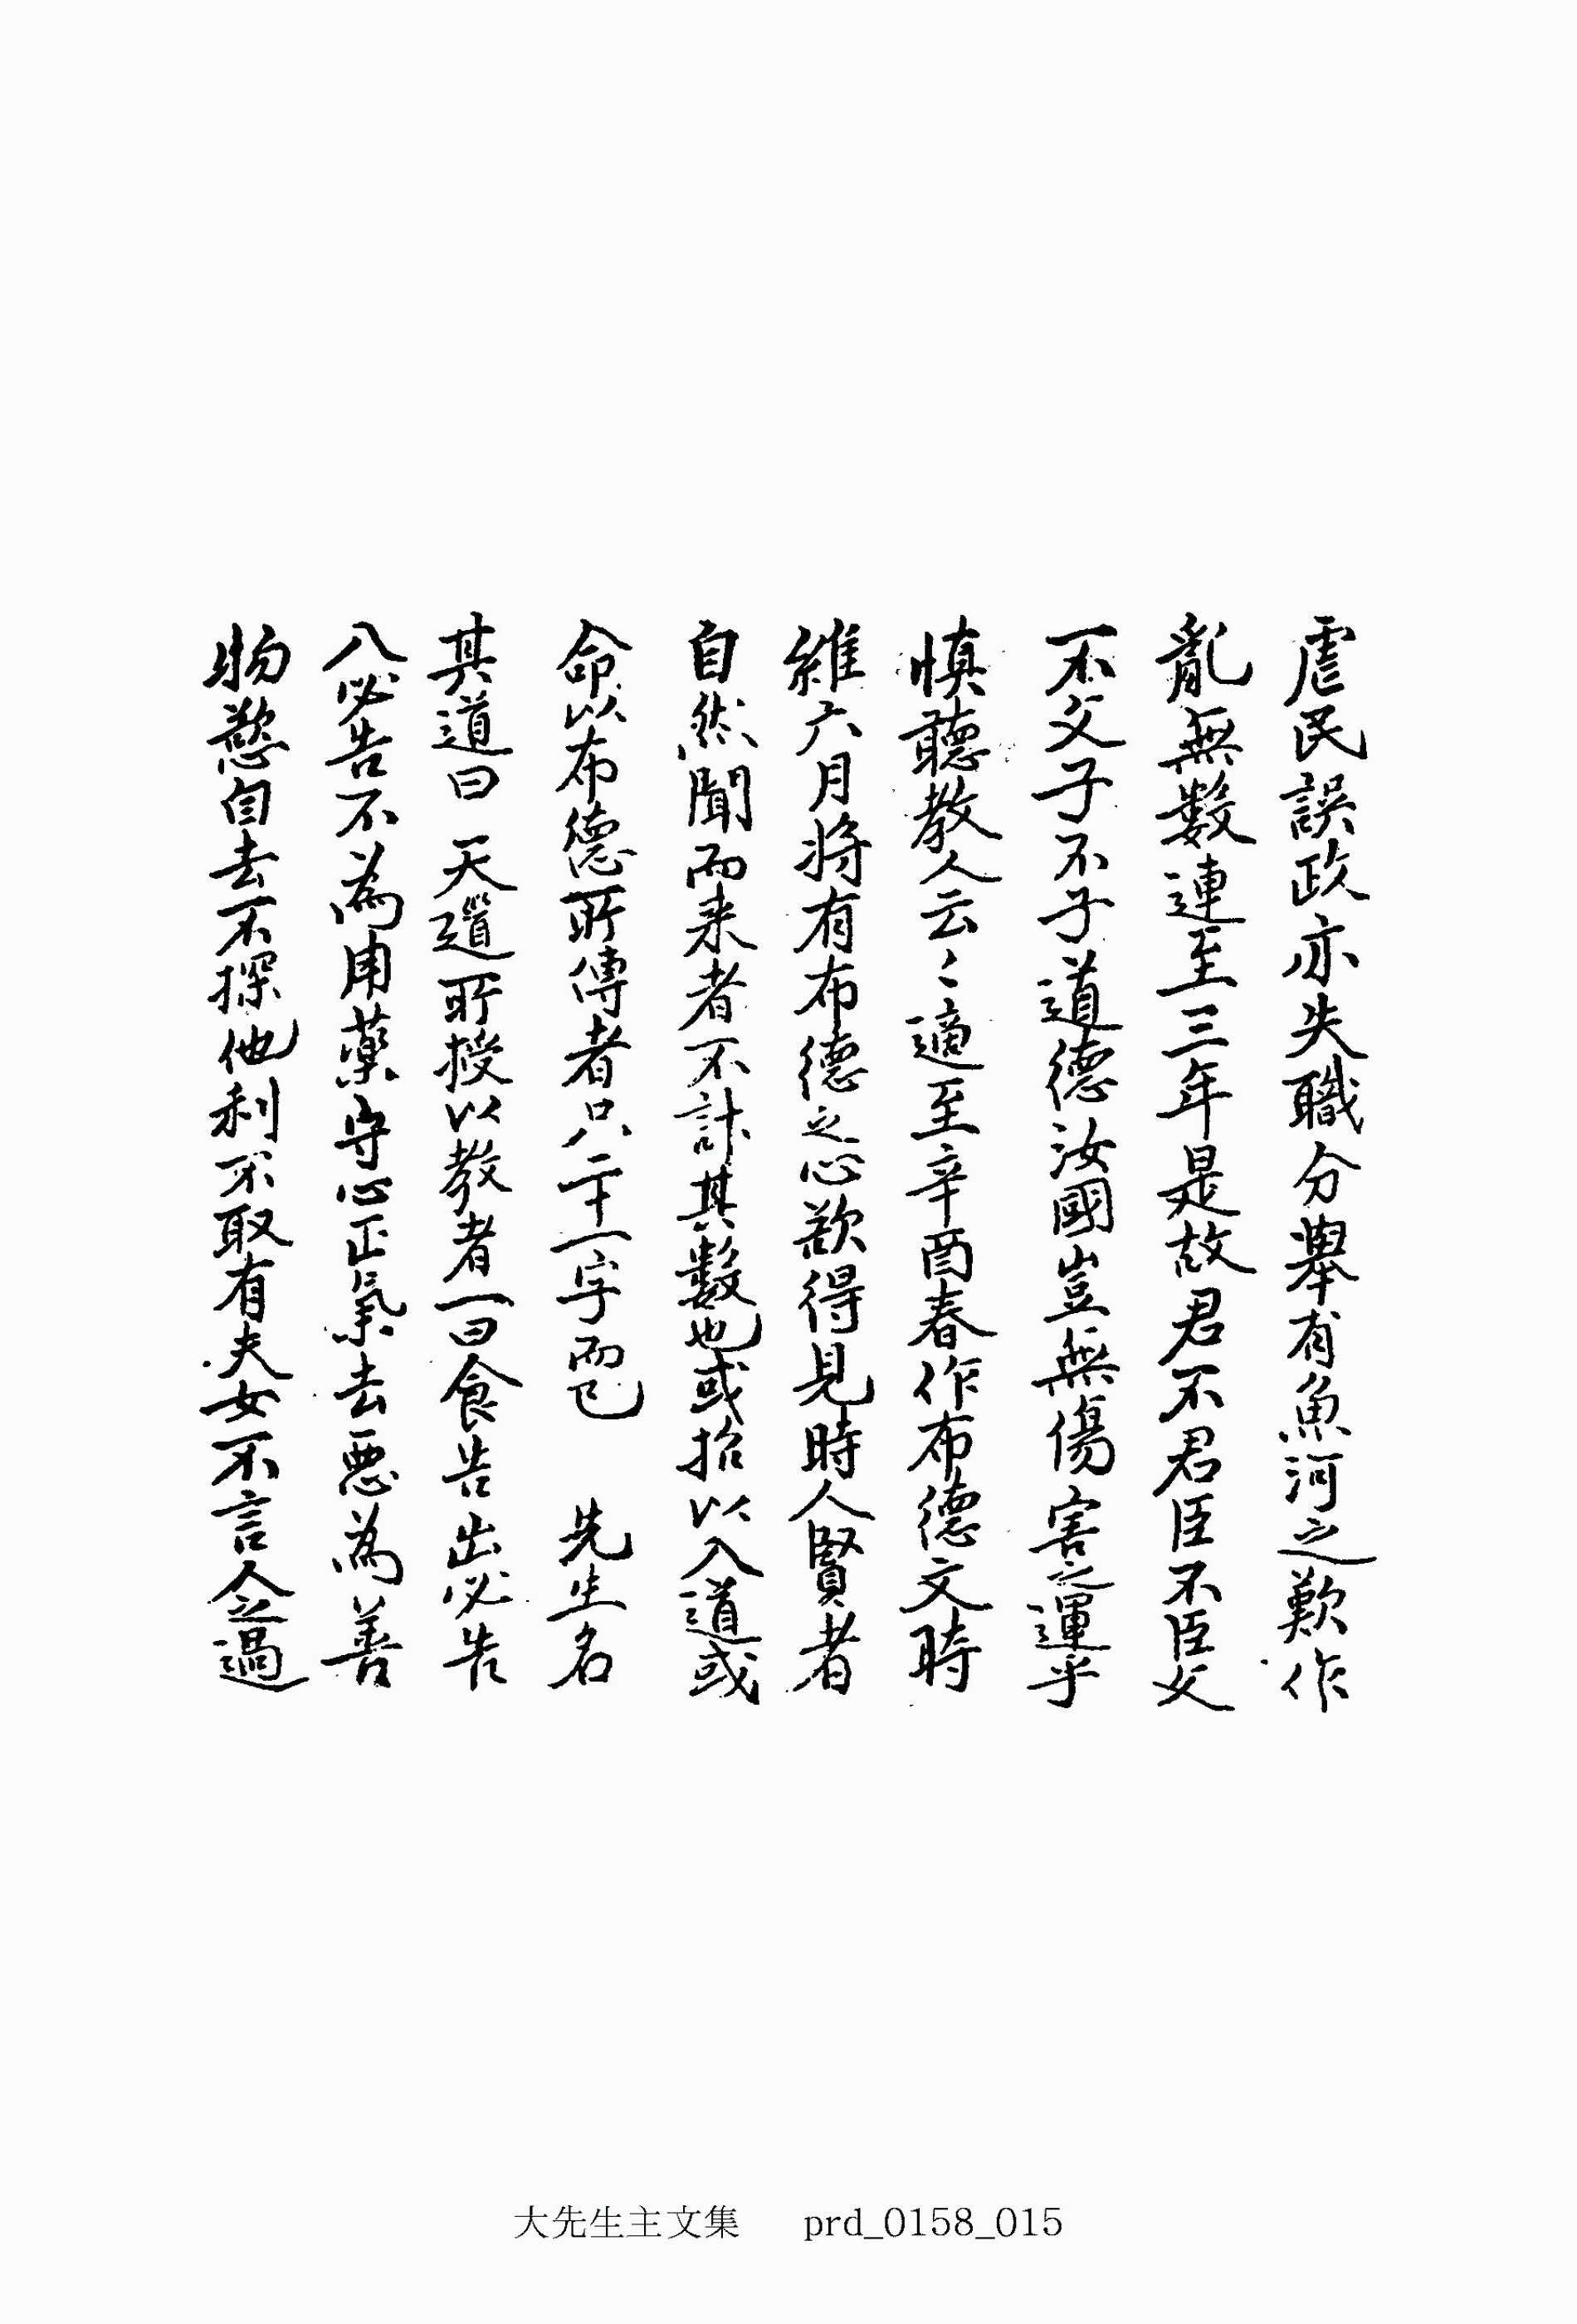 虐民誤政亦失職分擧有魚河之歎作
亂無数連至三年是故君不君臣不臣父
不父子不子道德汝國豈無傷害之運乎
慎聽教人云〻適至辛酉春作布德文時
維六月将有布德之心欲得見時人賢者
自然聞而来者不計其數也或招以入道或
命以布德所傳者只二十一字而已　先生名
其道曰　天道所授以教者一曰食告出必告
入必告不為用藥守心正氣去惡為善
物慾自去不探他利不取有夫女不言人之過
大先生主文集 prd_0158_015